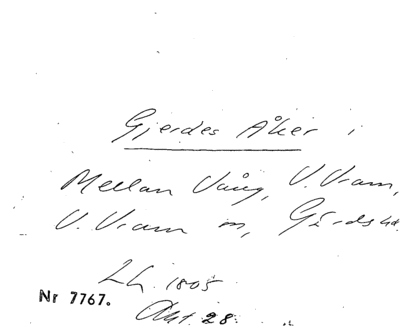 Gjerdes Åker i
Mellan Vång, V. Vram,
V. Vram sn, Gärds hd.
LH. 1805
Nr 7767.
Akt. 28.